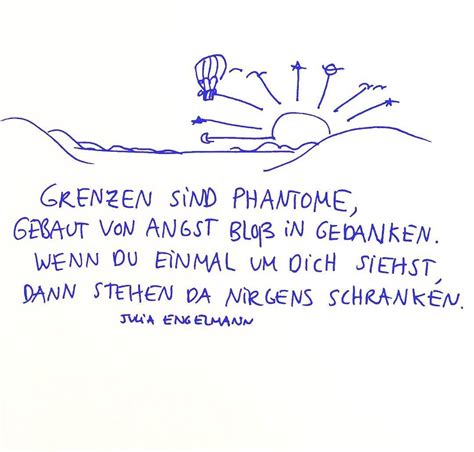 GRENZEN SIND PHANTOME,
GEBAUT VON ANGST BLOß IN GEDANKEN.
WENN DU EINMAL UM DICH SIEHST,
DANN STEHEN DA NIRGENS SCHRANKEN.
JULIA ENGELMANN